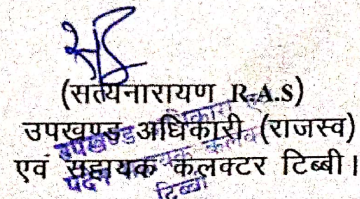 (सत्यनारायण R.A.S)
उपखण्ड अधिकारी (राजस्व)
एवं सहायक कलक्टर टिब्बी।
उपखण्ड अधिकारी
टिब्बी